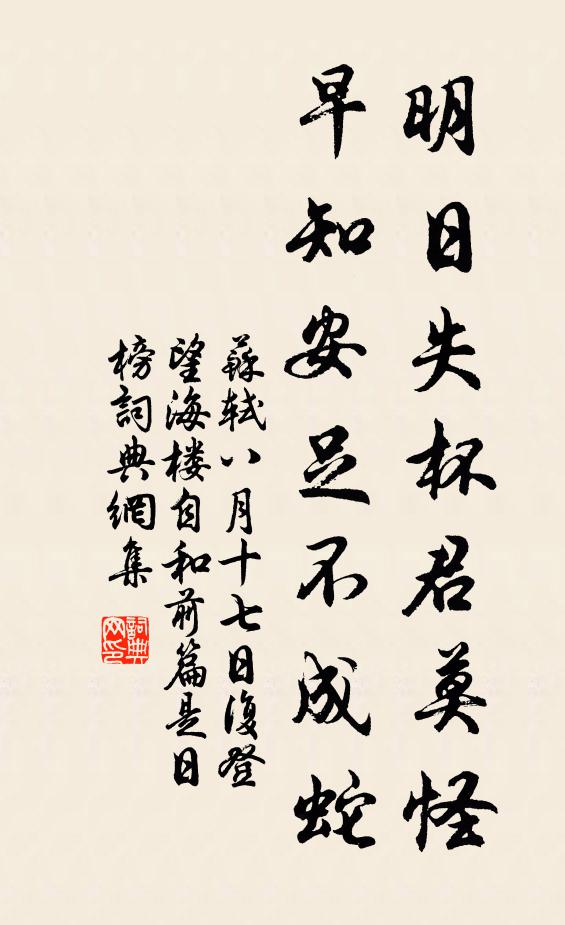 明日失杯君莫怪
早知安足不成蛇
蘇軾八月十七日復登
望海楼自和前篇是日
榜詞典網集
詞典
网印